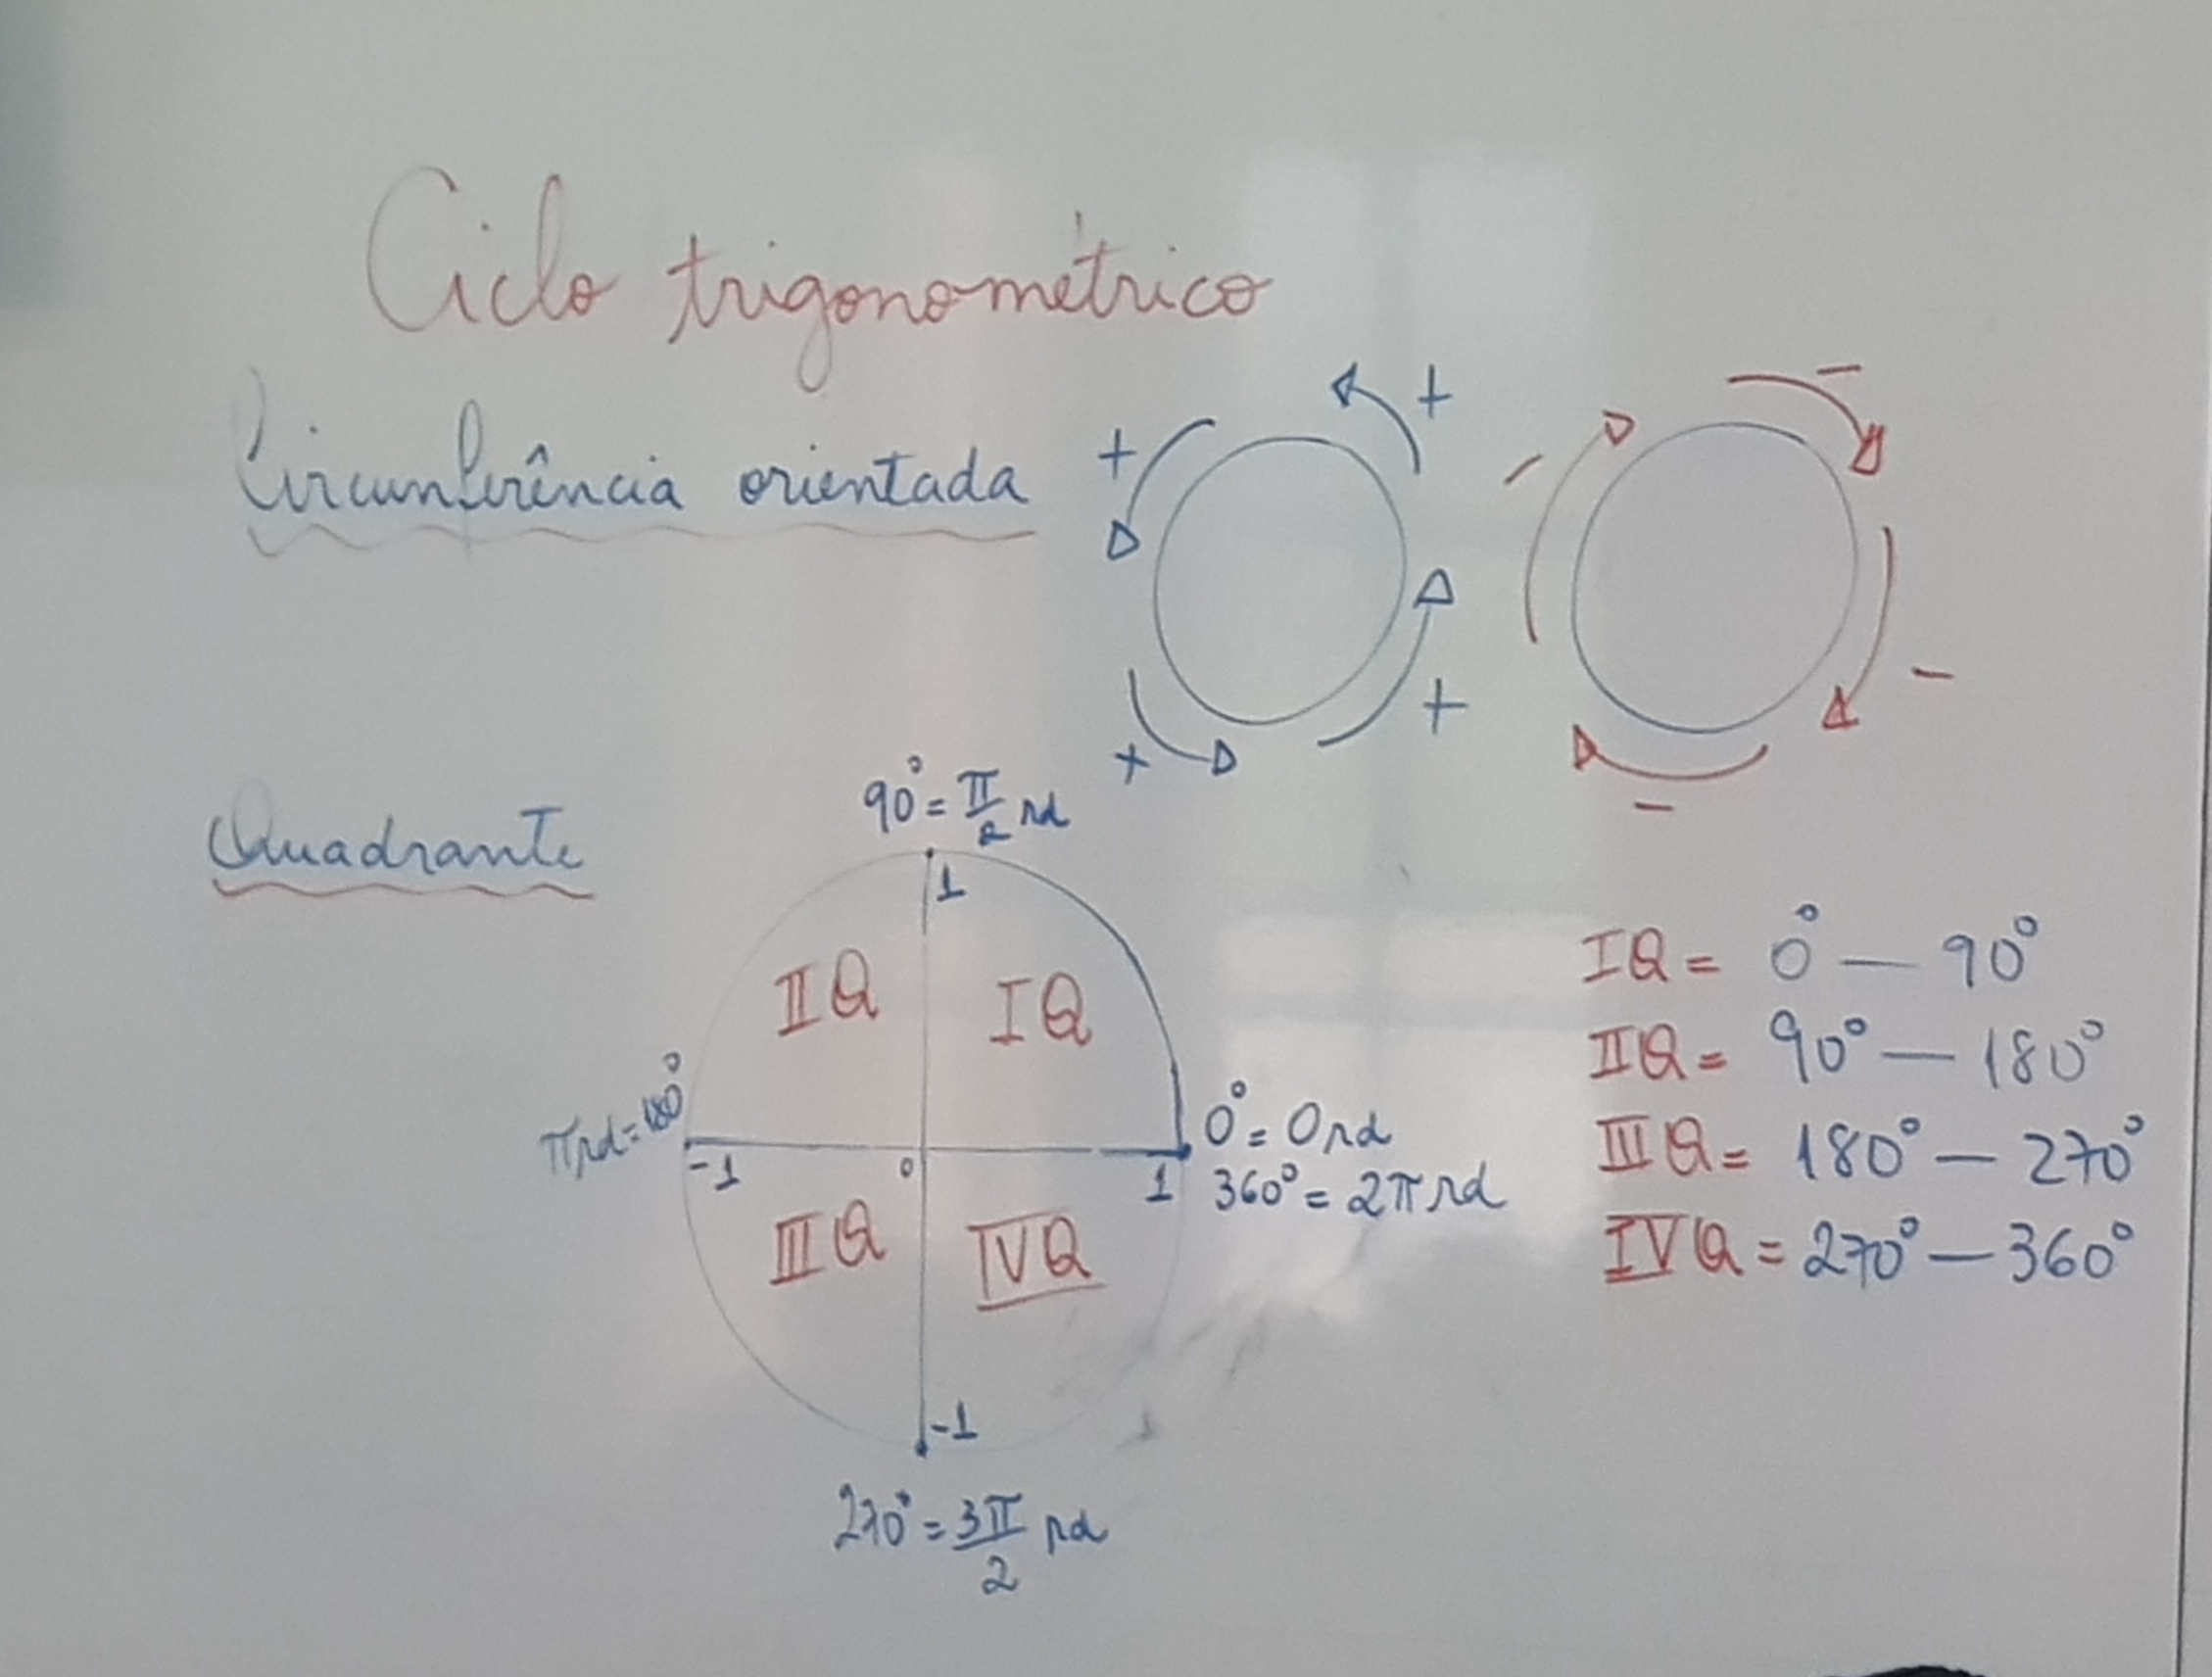 Ciclo trigonométrico
Circunferência orientada
+ + + +
- - - -
Quadrante
90° = π/2 rd
1
IIQ IQ
πrd = 180°
-1 0 1
0° = 0 rd
360° = 2π rd
IIIQ IVQ
-1
270° = 3π/2 rd
IQ = 0° — 90°
IIQ = 90° — 180°
IIIQ = 180° — 270°
IVQ = 270° — 360°